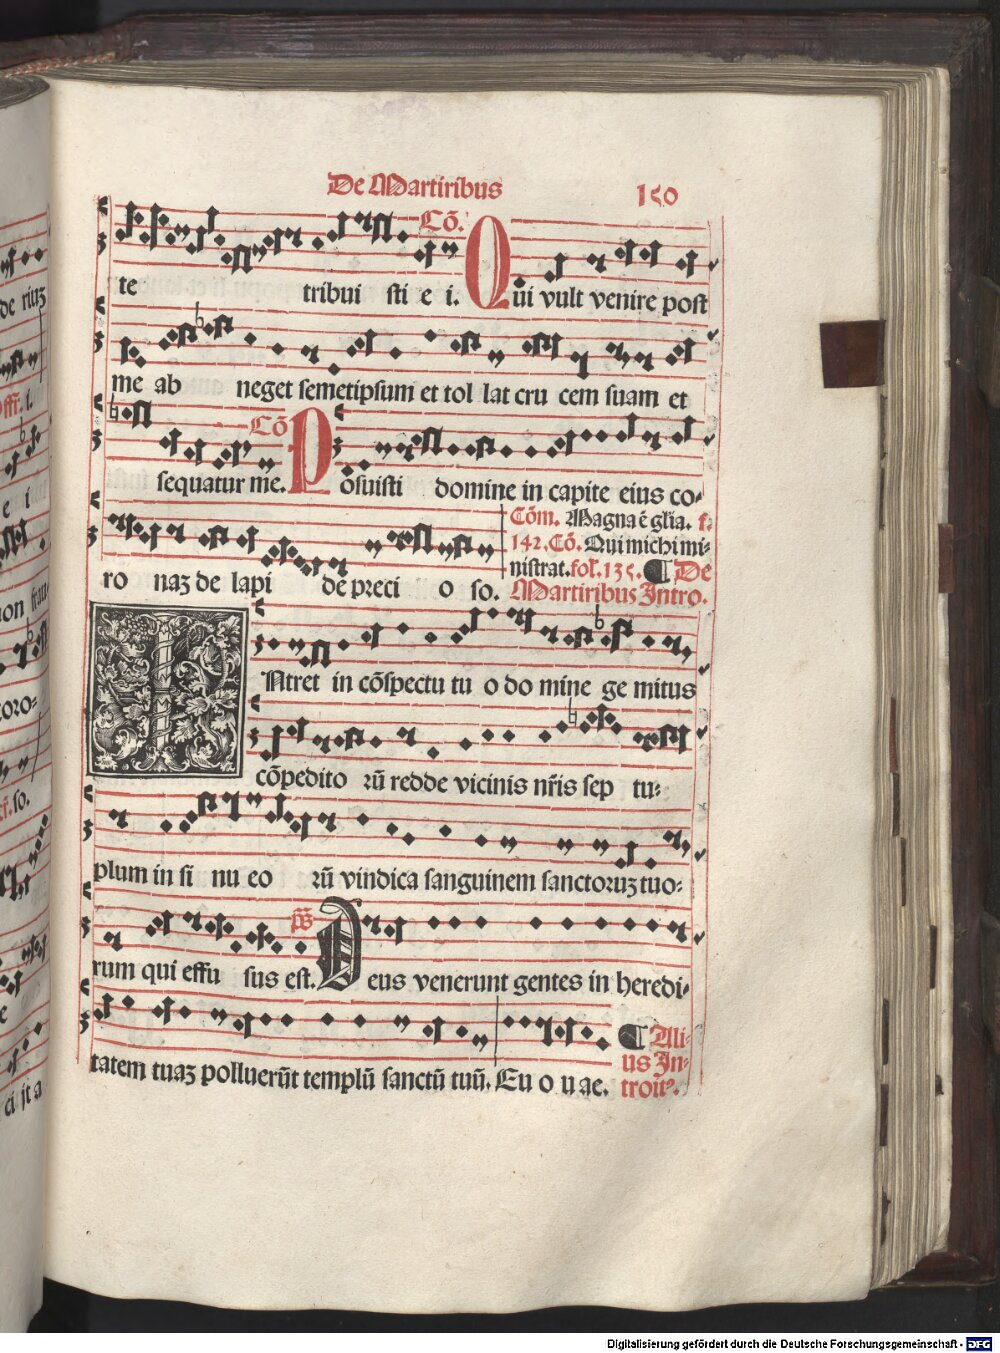 De Martiribus 150
te tribui sti e i. Cō. Qui vult venire post
me ab neget semetipsum et tol lat cru cem suam et
sequatur me. Cō Posuisti domine in capite eius co-
ro naꝫ de lapi de preci o so.
Cōm. Magna ē glīa. f.
142. Cō. Qui michi mi-
nistrat. fol. 135. ¶ De
Martiribus Intro.
Ntret in cōspectu tu o do mine ge mitus
cōpedito rū redde vicinis nr̄is sep tu-
plum in si nu eo rū vindica sanguinem sanctoruꝫ tuo-
rum qui effu sus est. ps̄ Deus venerunt gentes in heredi-
tatem tuaꝫ polluerūt templū sanctū tuū. Eu o u ae.
¶ Ali-
us In-
troit.
de riuꝫ
Offr̄. i.
e i
coro-
so.
Digitalisierung gefördert durch die Deutsche Forschungsgemeinschaft - DFG